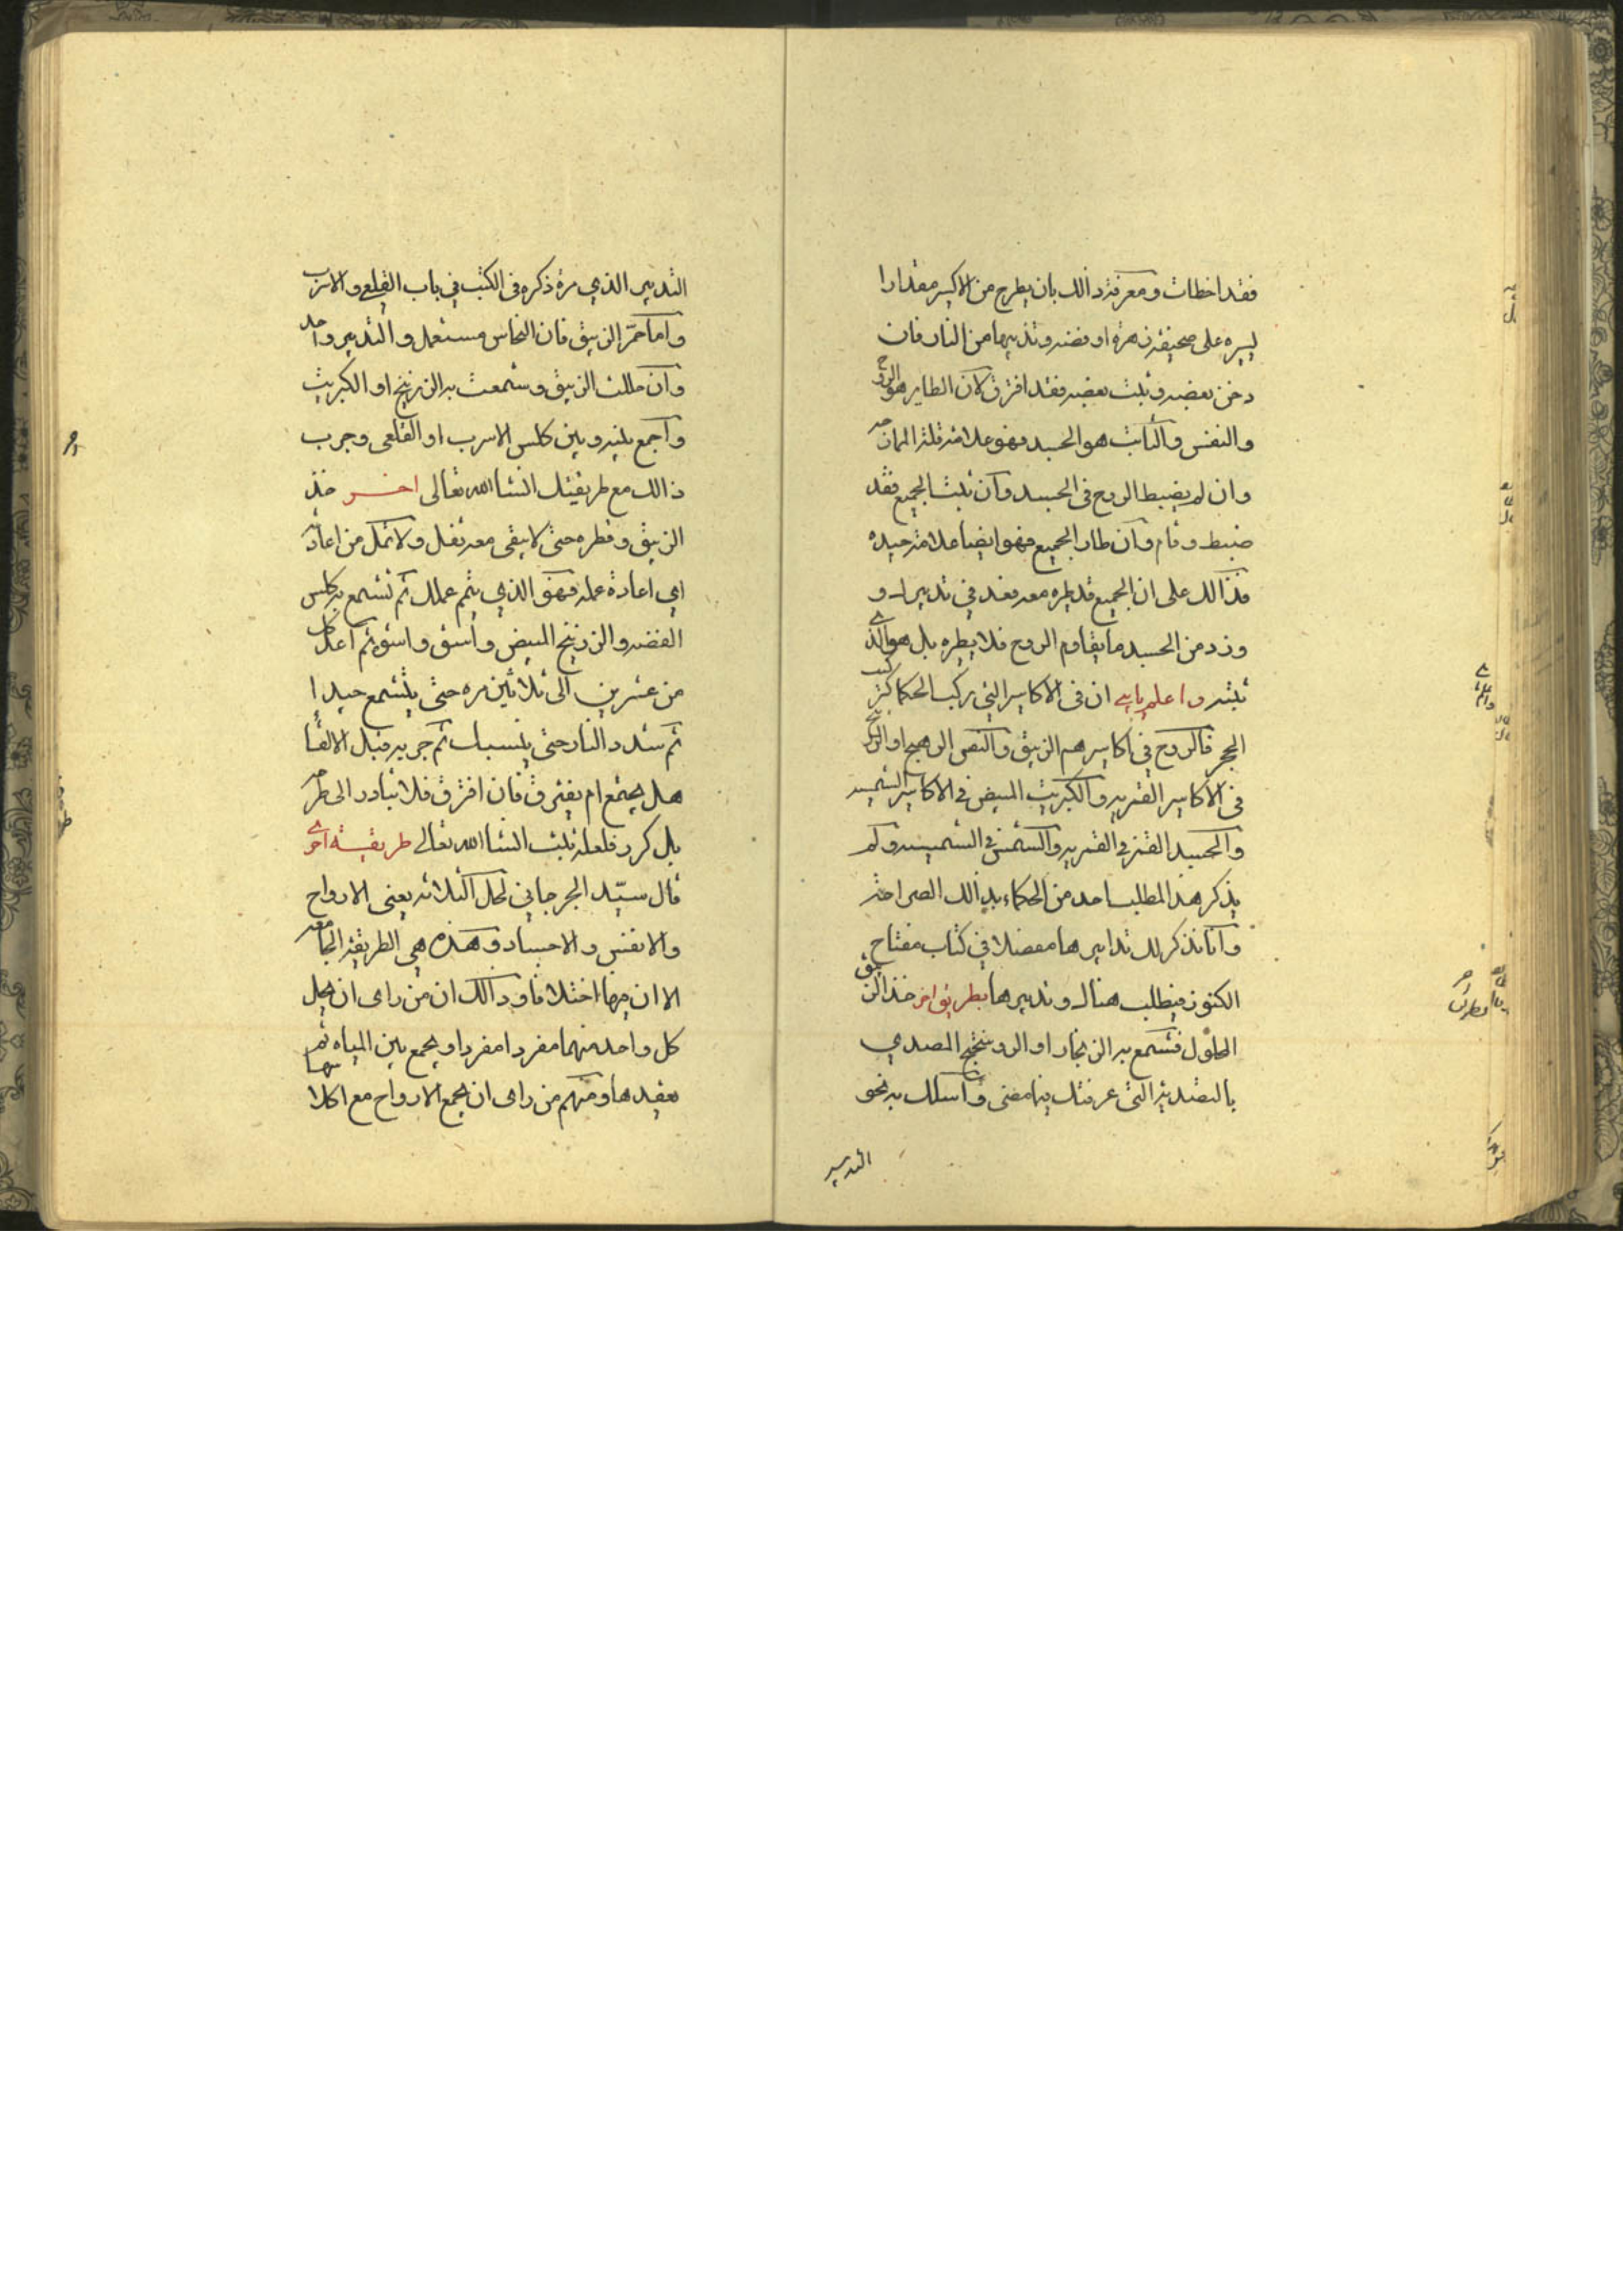 فقد اخطات ومعرفة ذالك بان يطرح من الاكسير مقدارا
يسيره على صحيفة زهرة او فضه وتدنيها من النار فان
دخن بعضه وثبت بعضه فقد افترق لان الطاير هو الروح
والنفس والثابت هو الجسد فهو علامة قلة المزاج
وان لم يضبط الروح فى الجسد وان ثبت الجميع فقد
ضبط وقام وان طار الجميع فهو ايضا علامة جيده
فذالك على ان الجميع قد طيره معه فعد فى تدبيرك و
وزد من الجسد ما يقاوم الروح فلا يطيره بل هو الذى
يثبته واعلم يا بنى ان فى الاكاسير التى ركب الحكما كتركيب
الحجر فالروح فى اكاسيرهم الزيبق والنفس الرهج او الزرنيخ
فى الاكاسير القمريه والكبريت المبيض فى الاكاسير الشمسيه
والجسد القمر فى القمريه والشمس فى الشمسيه ولم
يذكر هذا المطلب احد من الحكماء بذالك الصراحة
وانا نذكر لك تدابيرها مفصلا فى كتاب مفتاح
الكنوز فيطلب هناك وتدبيرها بطريق اخر خذ الزيبق
المحلول فتشمع به الزنجار او الروسختج المصدي
بالتصدية التى عرفتك فيما مضى واسلك به نحو
التدبير
التدبير الذي مره ذكره فى الكتب فى باب القلعي والاسرب
واما حمر الزيبق فان النحاس مستعمل والتدبير واحد
وان حللت الزيبق وشمعت به الزرنيخ او الكبريت
واجمع بينه وبين كلس الاسرب او القلعى وجرب
ذالك مع طريقتك انشا الله تعالى اخر خذ
الزيبق وقطره حتى لا يبقى معه ثفل ولا تمل من اعادة
اي اعادة عمله فهو الذي يتم عملك ثم تشمع به كلس
الفضه والزرنيخ المبيض واسق واشو ثم اعد ذلك
من عشرين الى ثلاثين مره حتى يتشمع جيدا
ثم شدد النار حتى ينسبك ثم جربه قبل الالقا
هل يجتمع ام يفترق فان افترق فلا تبادر الى طرحه
بل كرر فلعله يثبت انشا الله تعالى طريقة اخرى
قال سيد الجرجاني لحل الثلاثه يعنى الارواح
والانفس والاجساد وهذه هى الطريقة الجامعه
الا ان فيها اختلافا وذالك ان من راى ان يحل
كل واحد منهما مفردا مفردا ويجمع بين المياه ثم
يعقدها ومنهم من راى ان يجمع الارواح مع اكلا